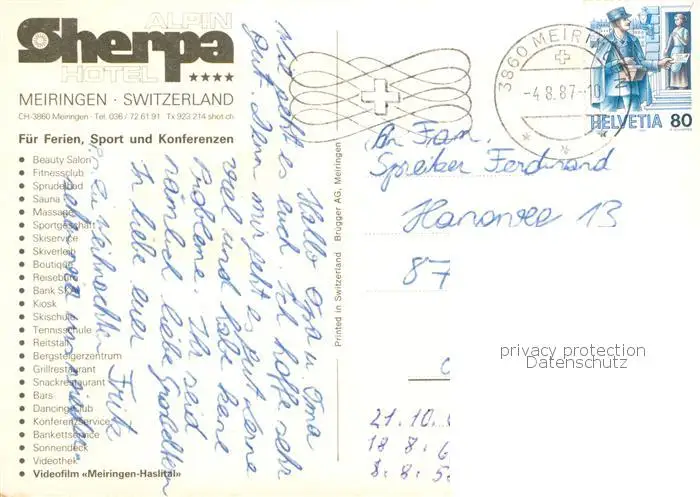 ALPIN
Sherpa
HOTEL ★★★★
MEIRINGEN · SWITZERLAND
CH-3860 Meiringen · Tel. 036 / 72 61 91 Tx 923 214 shot ch.
Für Ferien, Sport und Konferenzen
● Beauty Salon
● Fitnessclub
● Sprudelbad
● Sauna
● Massage
● Sportgeschäft
● Skiservice
● Skiverleih
● Boutique
● Reisebüro
● Bank SKA
● Kiosk
● Skischule
● Tennisschule
● Reitstall
● Bergsteigerzentrum
● Grillrestaurant
● Snackrestaurant
● Bars
● Dancingclub
● Konferenzservice
● Bankettservice
● Sonnendeck
● Videothek
● Videofilm «Meiringen-Haslital»
Hallo Opa u. Oma
Wie geht es euch. Ich hoffe sehr
gut. Denn mir geht es gut. Lerne
viel und habe keine
Probleme. Ihr seid
nämlich liebe Großeltern
In liebe euer Fritz
Weihnachten
Printed in Switzerland Brügger AG, Meiringen
3860 MEIRINGEN
-4.8.87-10
HELVETIA 80
An Fam.
Spreitzer Ferdinand
Hanonsee 13
87
privacy protection
Datenschutz
21.10.
18 8. 6
8. 8. 5